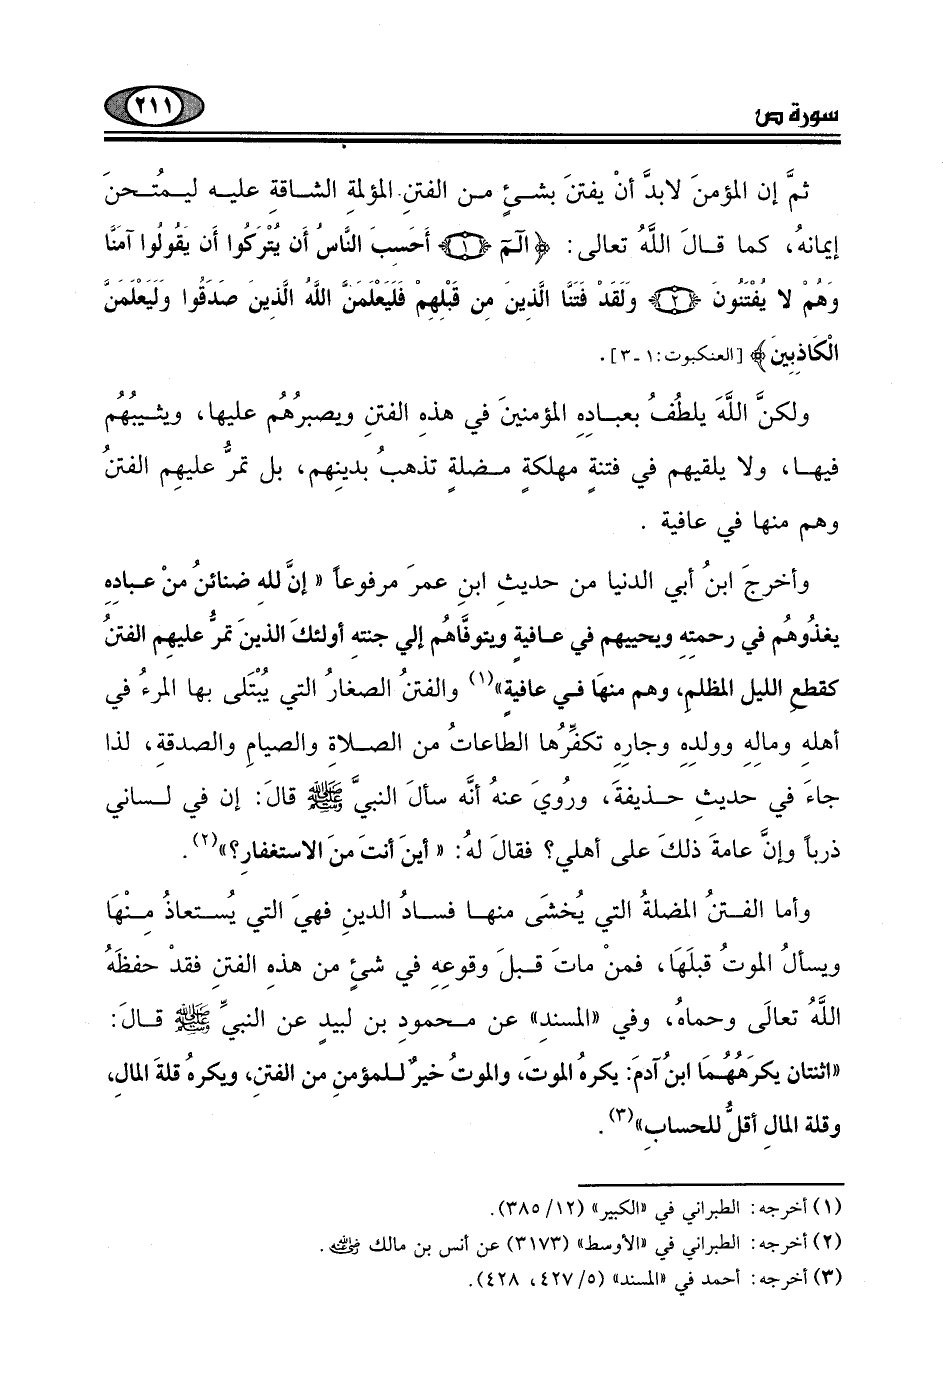 سورة ص
٢١١
ثمَّ إن المؤمنَ لابدَّ أنْ يفتنَ بشئٍ من الفتنِ المؤلمة الشاقةِ عليه ليمتُحنَ
إيمانهُ، كما قالَ اللَّهُ تعالى: ﴿الٓمٓ ﴿١﴾ أَحَسِبَ النَّاسُ أَن يُتْرَكُوا أَن يَقُولُوا آمَنَّا
وَهُمْ لا يُفْتَنُونَ ﴿٢﴾ وَلَقَدْ فَتَنَّا الَّذِينَ مِن قَبْلِهِمْ فَلَيَعْلَمَنَّ اللَّهُ الَّذِينَ صَدَقُوا وَلَيَعْلَمَنَّ
الْكَاذِبِينَ﴾ [العنكبوت: ١ـ٣].
ولكنَّ اللَّهَ يلطُفُ بعباده المؤمنينَ في هذهِ الفتنِ ويصبرُهُم عليها، ويثيبُهُم
فيها، ولا يلقيهم في فتنةٍ مهلكةٍ مضلةٍ تذهبُ بدينِهم، بل تمرُّ عليهِم الفتنُ
وهم منها في عافية .
وأخرجَ ابنُ أبي الدنيا من حديثِ ابنِ عمرَ مرفوعاً « إنَّ للهِ ضنائنُ منْ عبادِه
يغذُوهُم في رحمتِه ويحييهم في عافيةٍ ويتوفَّاهُم إلي جنتِه أولئكَ الذينَ تمرُّ عليهِم الفتنُ
كقطعِ الليل المظلمِ، وهم منهَا في عافيةٍ»(١) والفتنُ الصغارُ التي يُبْتَلى بها المرءُ في
أهلهِ ومالهِ وولدِه وجارِه تكفِّرُها الطاعاتُ من الصلاةِ والصيامِ والصدقةِ، لذا
جاءَ في حديثِ حذيفةَ، ورُويَ عنهُ أنَّه سألَ النبيَّ ﷺ قالَ: إن في لساني
ذرباً وإنَّ عامةَ ذلكَ على أهلي؟ فقالَ لهُ: « أينَ أنتَ منَ الاستغفارِ؟»(٢).
وأما الفتنُ المضلةُ التي يُخشَى منها فسادُ الدينِ فهيَ التي يُستعاذُ مِنْهَا
ويسألُ الموتُ قبلَهَا، فمنْ ماتَ قبلَ وقوعِهِ في شئٍ من هذه الفتنِ فقدْ حفظَهُ
اللَّهُ تعالَى وحماهُ، وفي «المسند» عن محمودِ بن لبيدٍ عن النبيِّ ﷺ قالَ:
«اثنتان يكرَهُهُمَا ابنُ آدمَ: يكرهُ الموتَ، والموتُ خيرٌ للمؤمنِ من الفتنِ، ويكرهُ قلةَ المالِ،
وقلة المالِ أقلُّ للحسابِ»(٣).
(١) أخرجه: الطبراني في «الكبير» (١٢/ ٣٨٥).
(٢) أخرجه: الطبراني في «الأوسط» (٣١٧٣) عن أنس بن مالك رضي الله عنه.
(٣) أخرجه: أحمد في «المسند» (٥/ ٤٢٧، ٤٢٨).